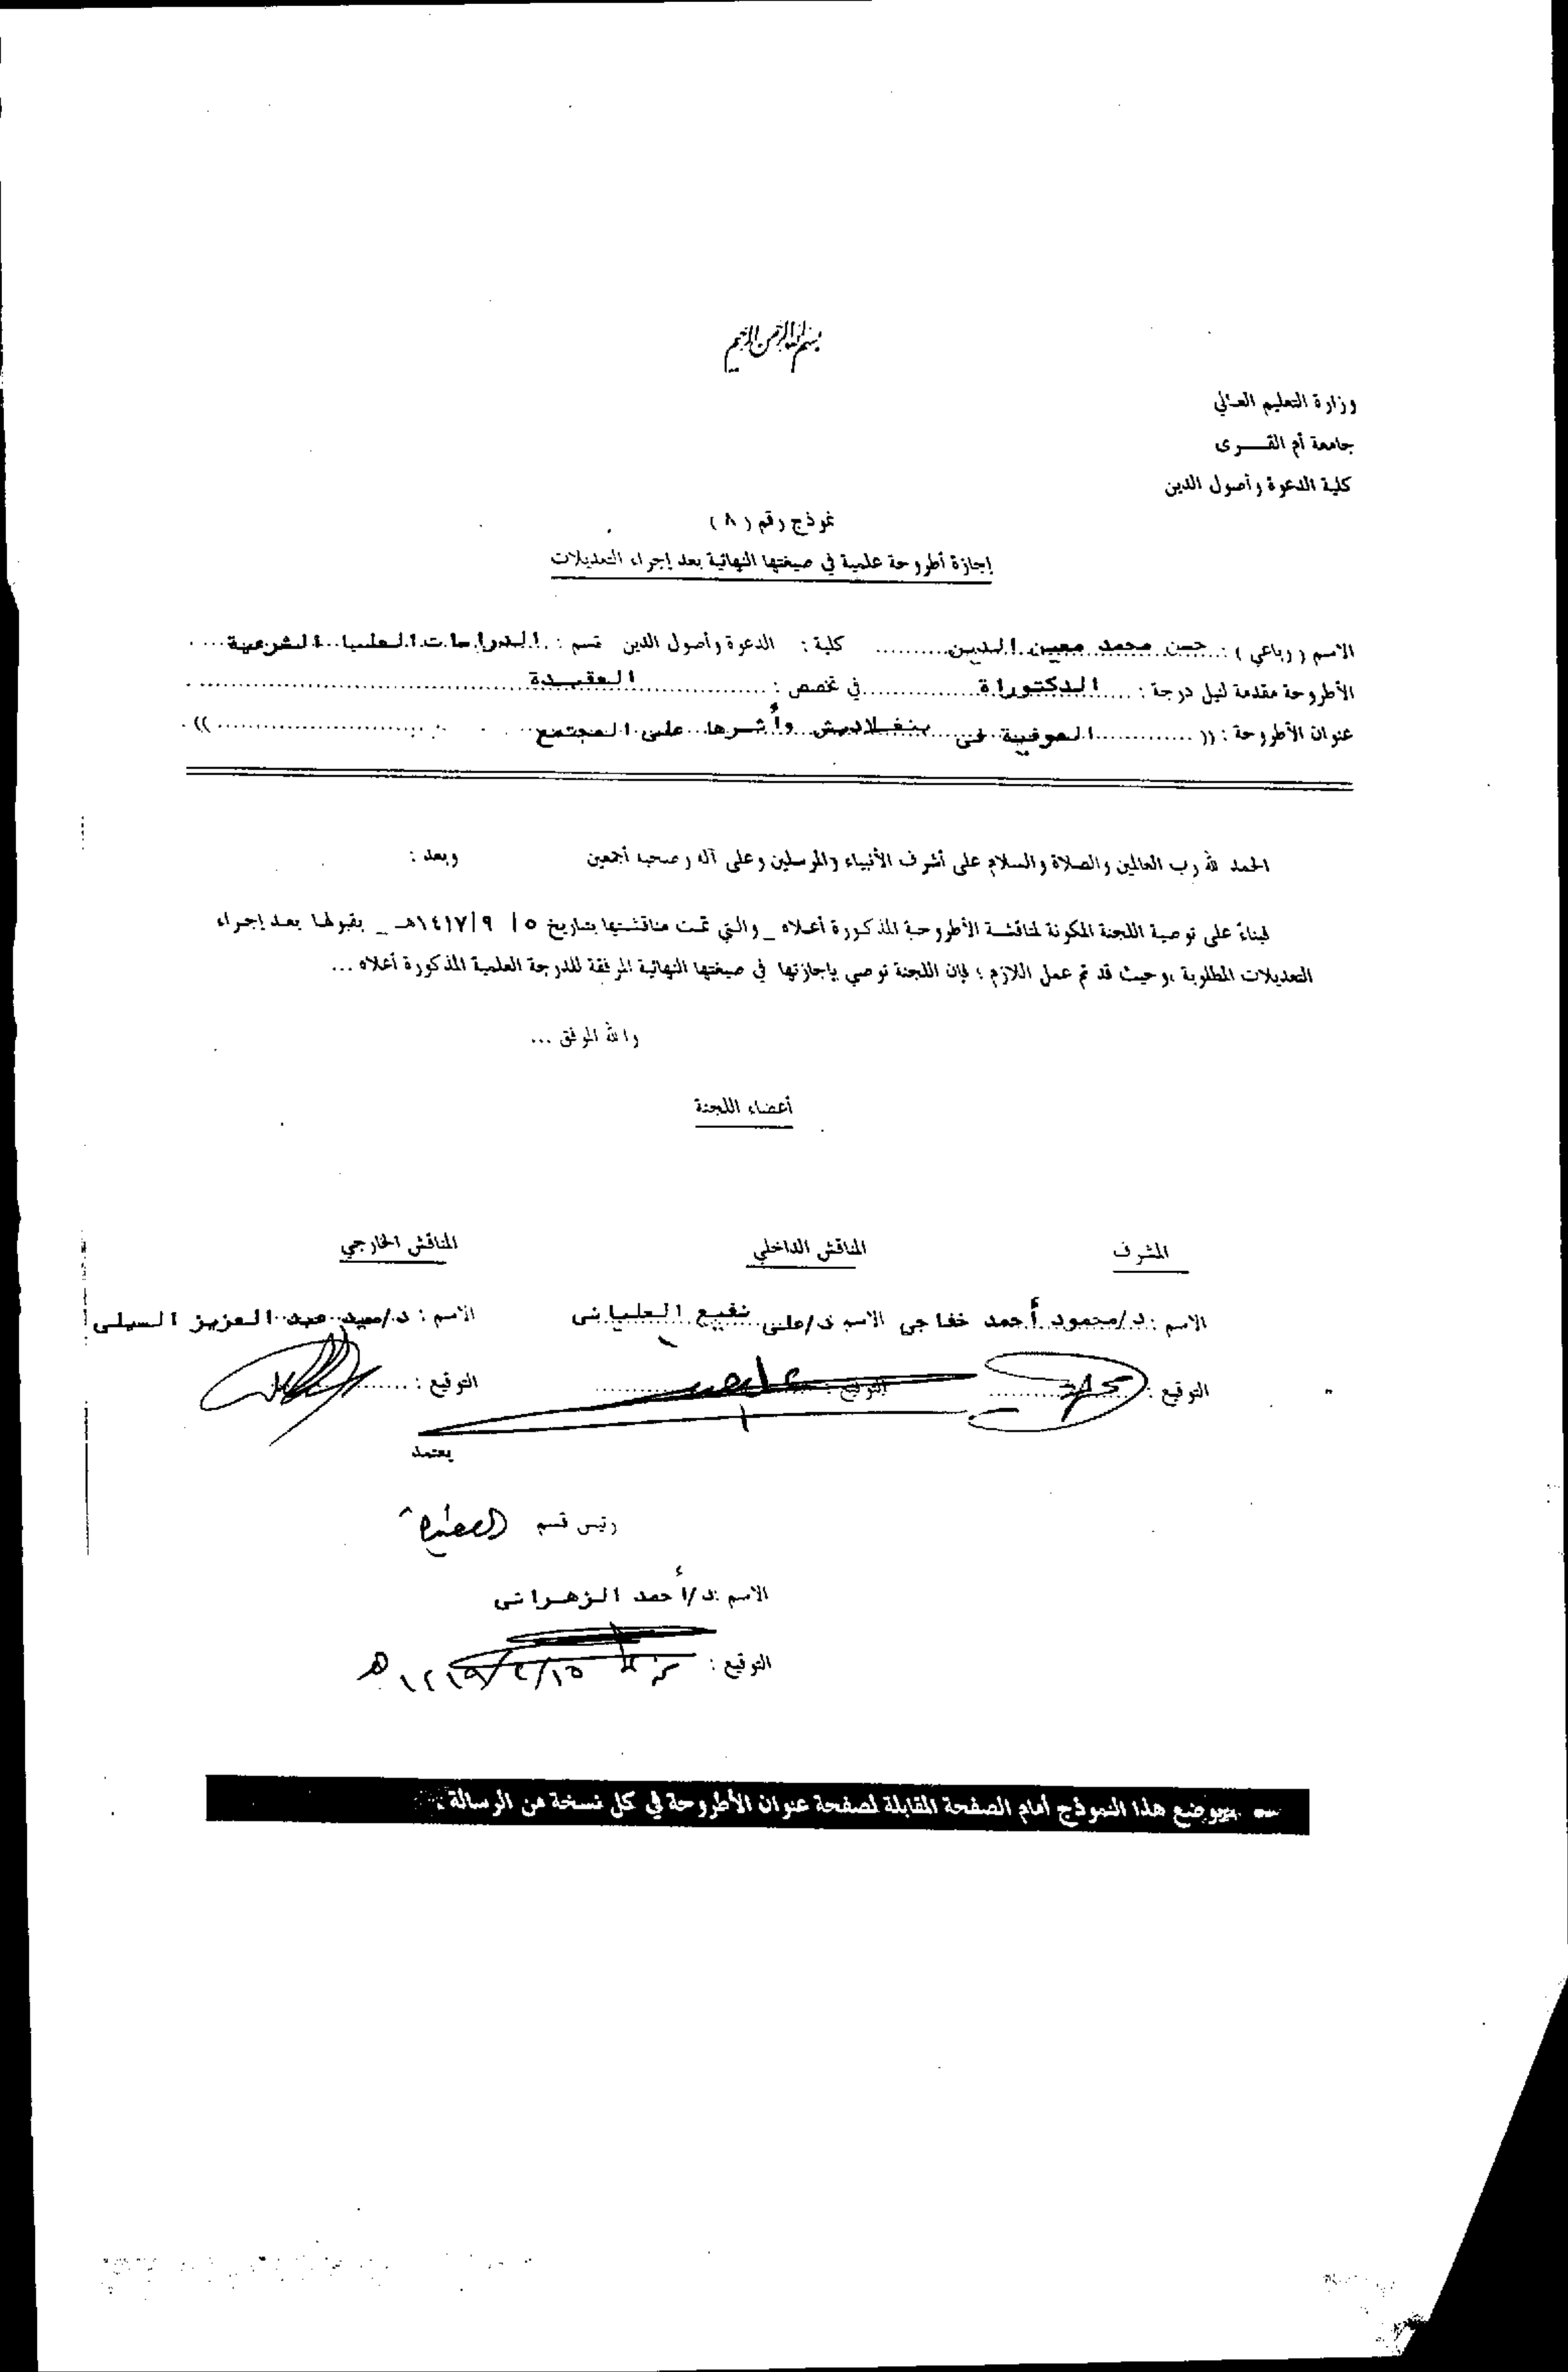 بسم الله الرحمن الرحيم
وزارة التعليم العالي
جامعة أم القــــرى
كلية الدعوة وأصول الدين
نموذج رقم ( ٨ )
إجازة أطروحة علمية في صيغتها النهائية بعد إجراء التعديلات
الاسم ( رباعي ) : حسن محمد معين الدين كلية : الدعوة وأصول الدين قسم : الدراسات العليا الشرعية
الأطروحة مقدمة لنيل درجة : الدكتوراة في تخصص : العقيدة
عنوان الأطروحة : (( الصوفية فى بنغلاديش وأثرها على المجتمع ))
الحمد لله رب العالمين والصلاة والسلام على أشرف الأنبياء والمرسلين وعلى آله وصحبه أجمعين وبعد :
فبناءً على توصية اللجنة المكونة لمناقشة الأطروحة المذكورة أعلاه _ والتي تمت مناقشتها بتاريخ ٥ / ٩ /١٤١٧هـ _ بقبولها بعد إجراء
التعديلات المطلوبة ،وحيث قد تم عمل اللازم ؛ فإن اللجنة توصي بإجازتها في صيغتها النهائية المرفقة للدرجة العلمية المذكورة أعلاه ...
والله الموفق ...
أعضاء اللجنة
المشرف المناقش الداخلي المناقش الخارجي
الاسم : د/محمود أحمد خفاجى الاسم د/على نفيع العليانى الاسم : د/سيد عبد العزيز السيلى
التوقيع : التوقيع : التوقيع :
يعتمد
رئيس قسم العقيدة
الاسم :د/أحمد الزهرانى
التوقيع :
يوضع هذا النموذج أمام الصفحة المقابلة لصفحة عنوان الأطروحة في كل نسخة من الرسالة .